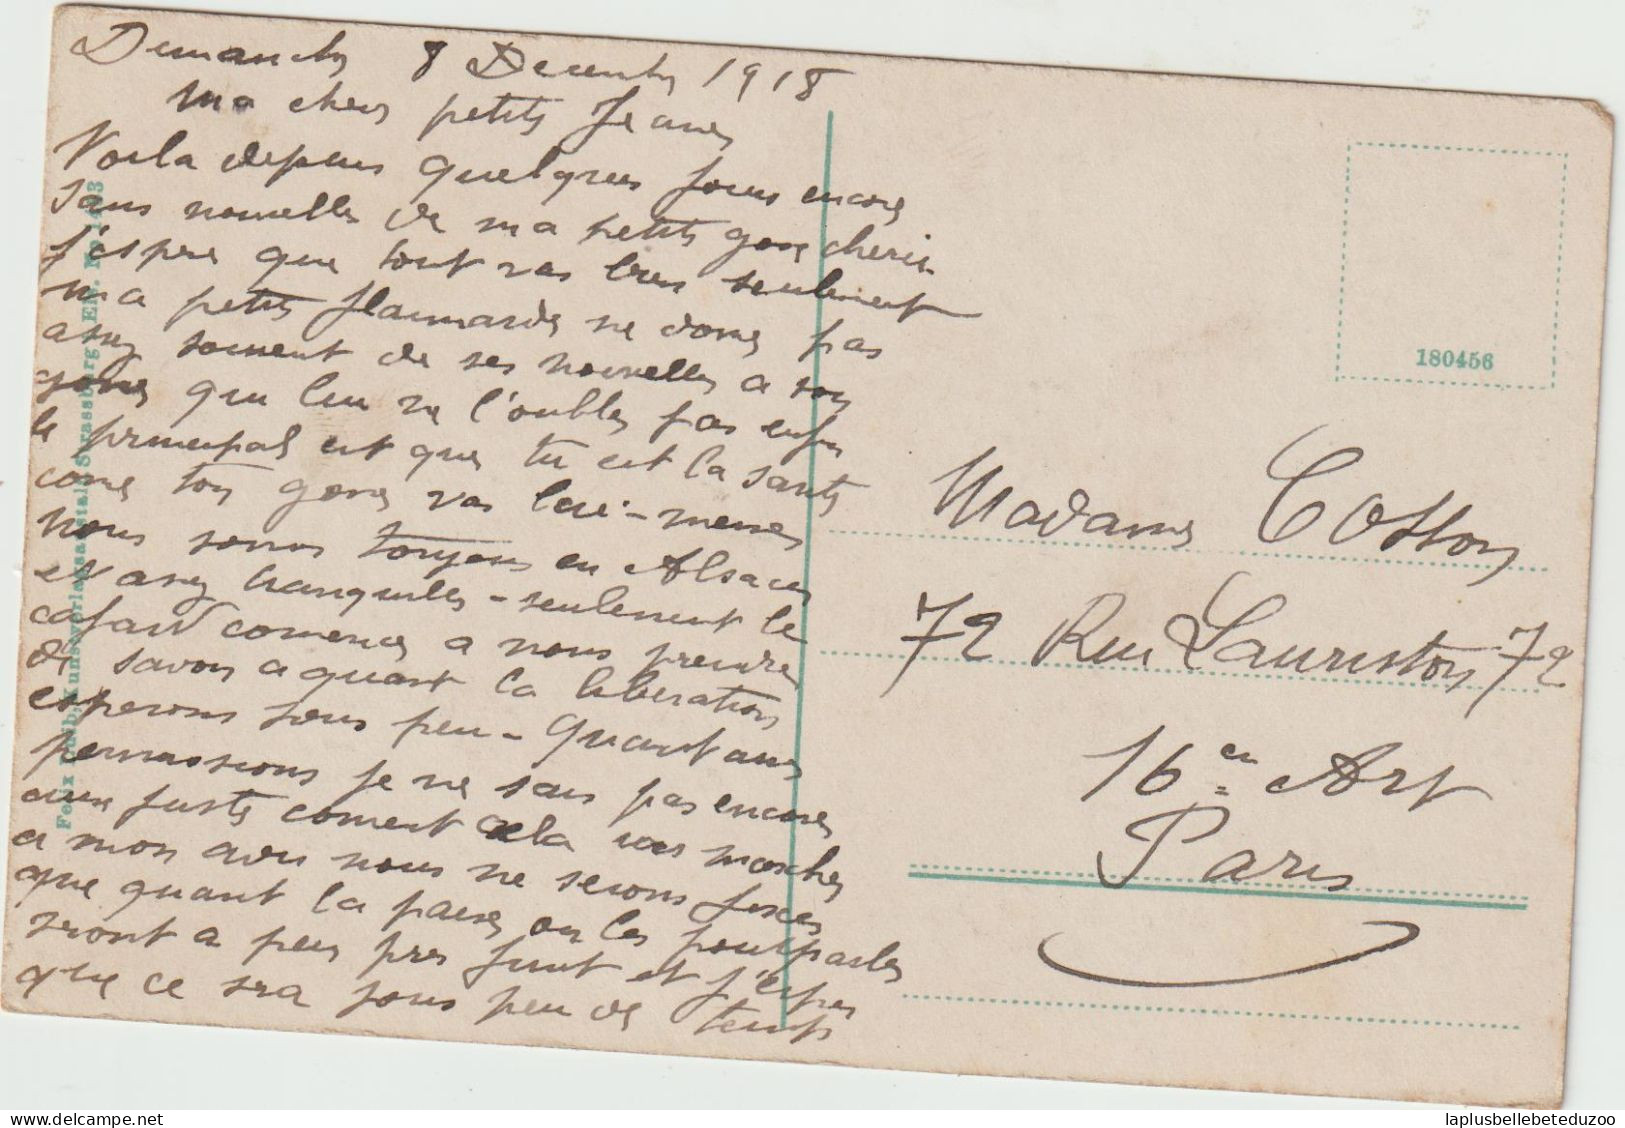 Dimanche 8 Decembre 1918
Ma chere petite Jeanne
Voila depuis quelques jours encore
sans nouvelles de ma petite gone cherie
j'espere que tout vas bien seulement
ma petite flamarde ne done pas
assez souvent de ses nouvelles a son
gone qui lui ne l'oublie pas enfin
le principal est que tu est la sante
come ton gone vas lui-meme
nous somes toujours en Alsace
et assez tranquilles - seulement le
cafard comence a nous prendre
de savoir a quant la liberation
esperons sous peu - quant aux
permissions je ne sais pas encore
aux juste coment cela vas marcher
a mon avis nous ne serons fixes
que quant la paix ou les pourparler
seront a peu pres finit et j'espere
que ce sera sous peu de temps
Madame Cosson
72 Rue Lauriston 72
16 em Art
Paris
180456
Felix Luib, Kunstverlagsanstalt, Strassburg Els.
laplusbellebeteduzoo